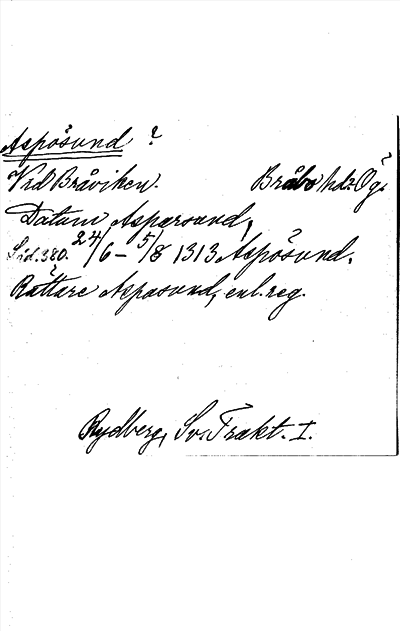 Aspösund ?
Vid Bråviken. Bråbo hd. Ög.
Datum Aspersund,
Sid. 380. 24/6 – 5/8 1313 Aspösund.
Rättare Aspasund, enl. reg.
Rydberg, Sv. Trakt. I.